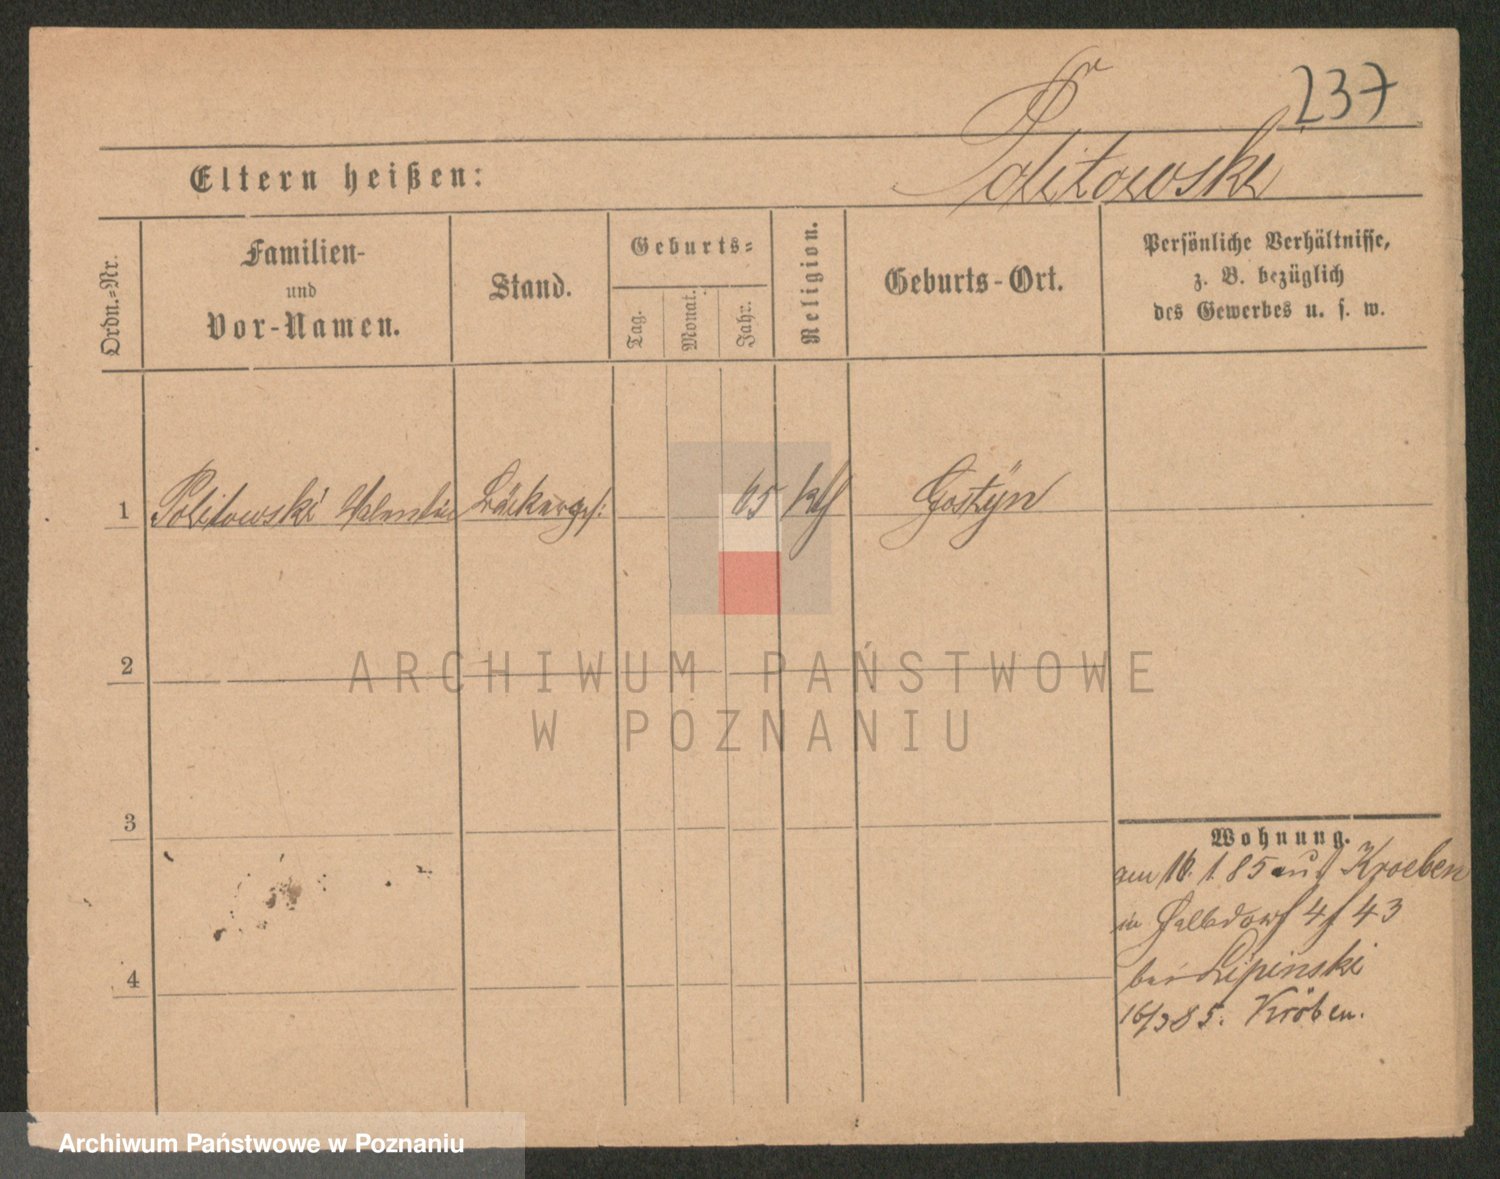 237
Politowski
Eltern heißen:
Ordn.=Nr.
Familien-
und
Vor-Namen.
Stand.
Geburts=
Tag.
Monat.
Jahr.
Religion.
Geburts-Ort.
Persönliche Verhältnisse,
z. B. bezüglich
des Gewerbes u. s. w.
1 Politowski Valentin Bäckerges: 65 kth Gostyn
2
3
4
Wohnung.
am 16. 1. 85 aus Kroeben
in 4/ 43
bei Lipinski
16/3 85. Kröben.
ARCHIWUM PAŃSTWOWE
W POZNANIU
Archiwum Państwowe w Poznaniu